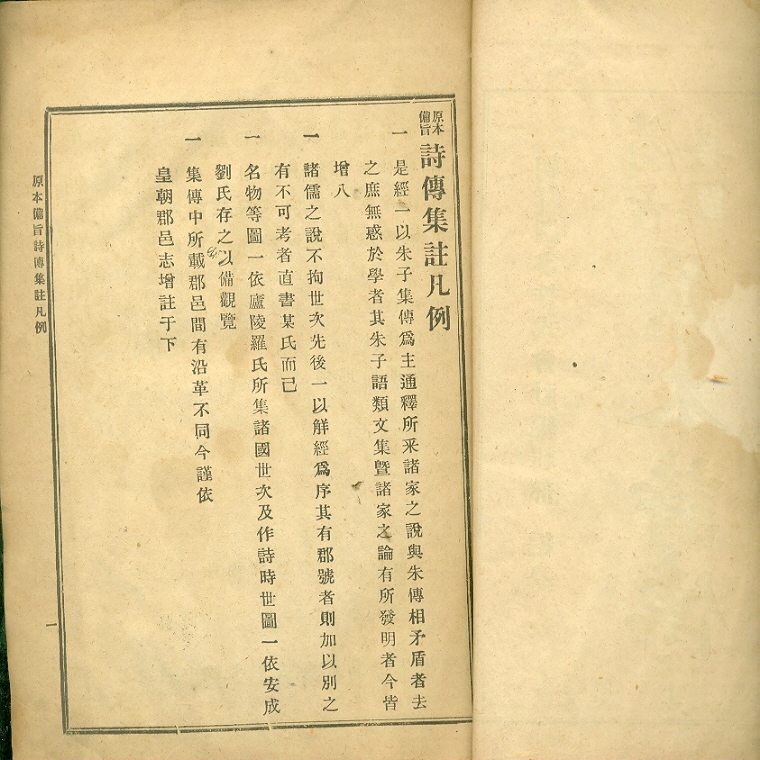 原本備旨 詩傳集註凡例
一 是經一以朱子集傳爲主通釋所釆諸家之說與朱傳相矛盾者去
之庶無惑於學者其朱子語類文集曁諸家之論有所發明者今皆
增入
一 諸儒之說不拘世次先後一以觧經爲序其有郡號者則加以別之
有不可考者直書某氏而已
一 名物等圖一依廬陵羅氏所集諸國世次及作詩時世圖一依安成
劉氏存之以備觀覽
一 集傳中所載郡邑間有沿革不同今謹依
皇朝郡邑志增註于下
原本備旨詩傳集註凡例
一